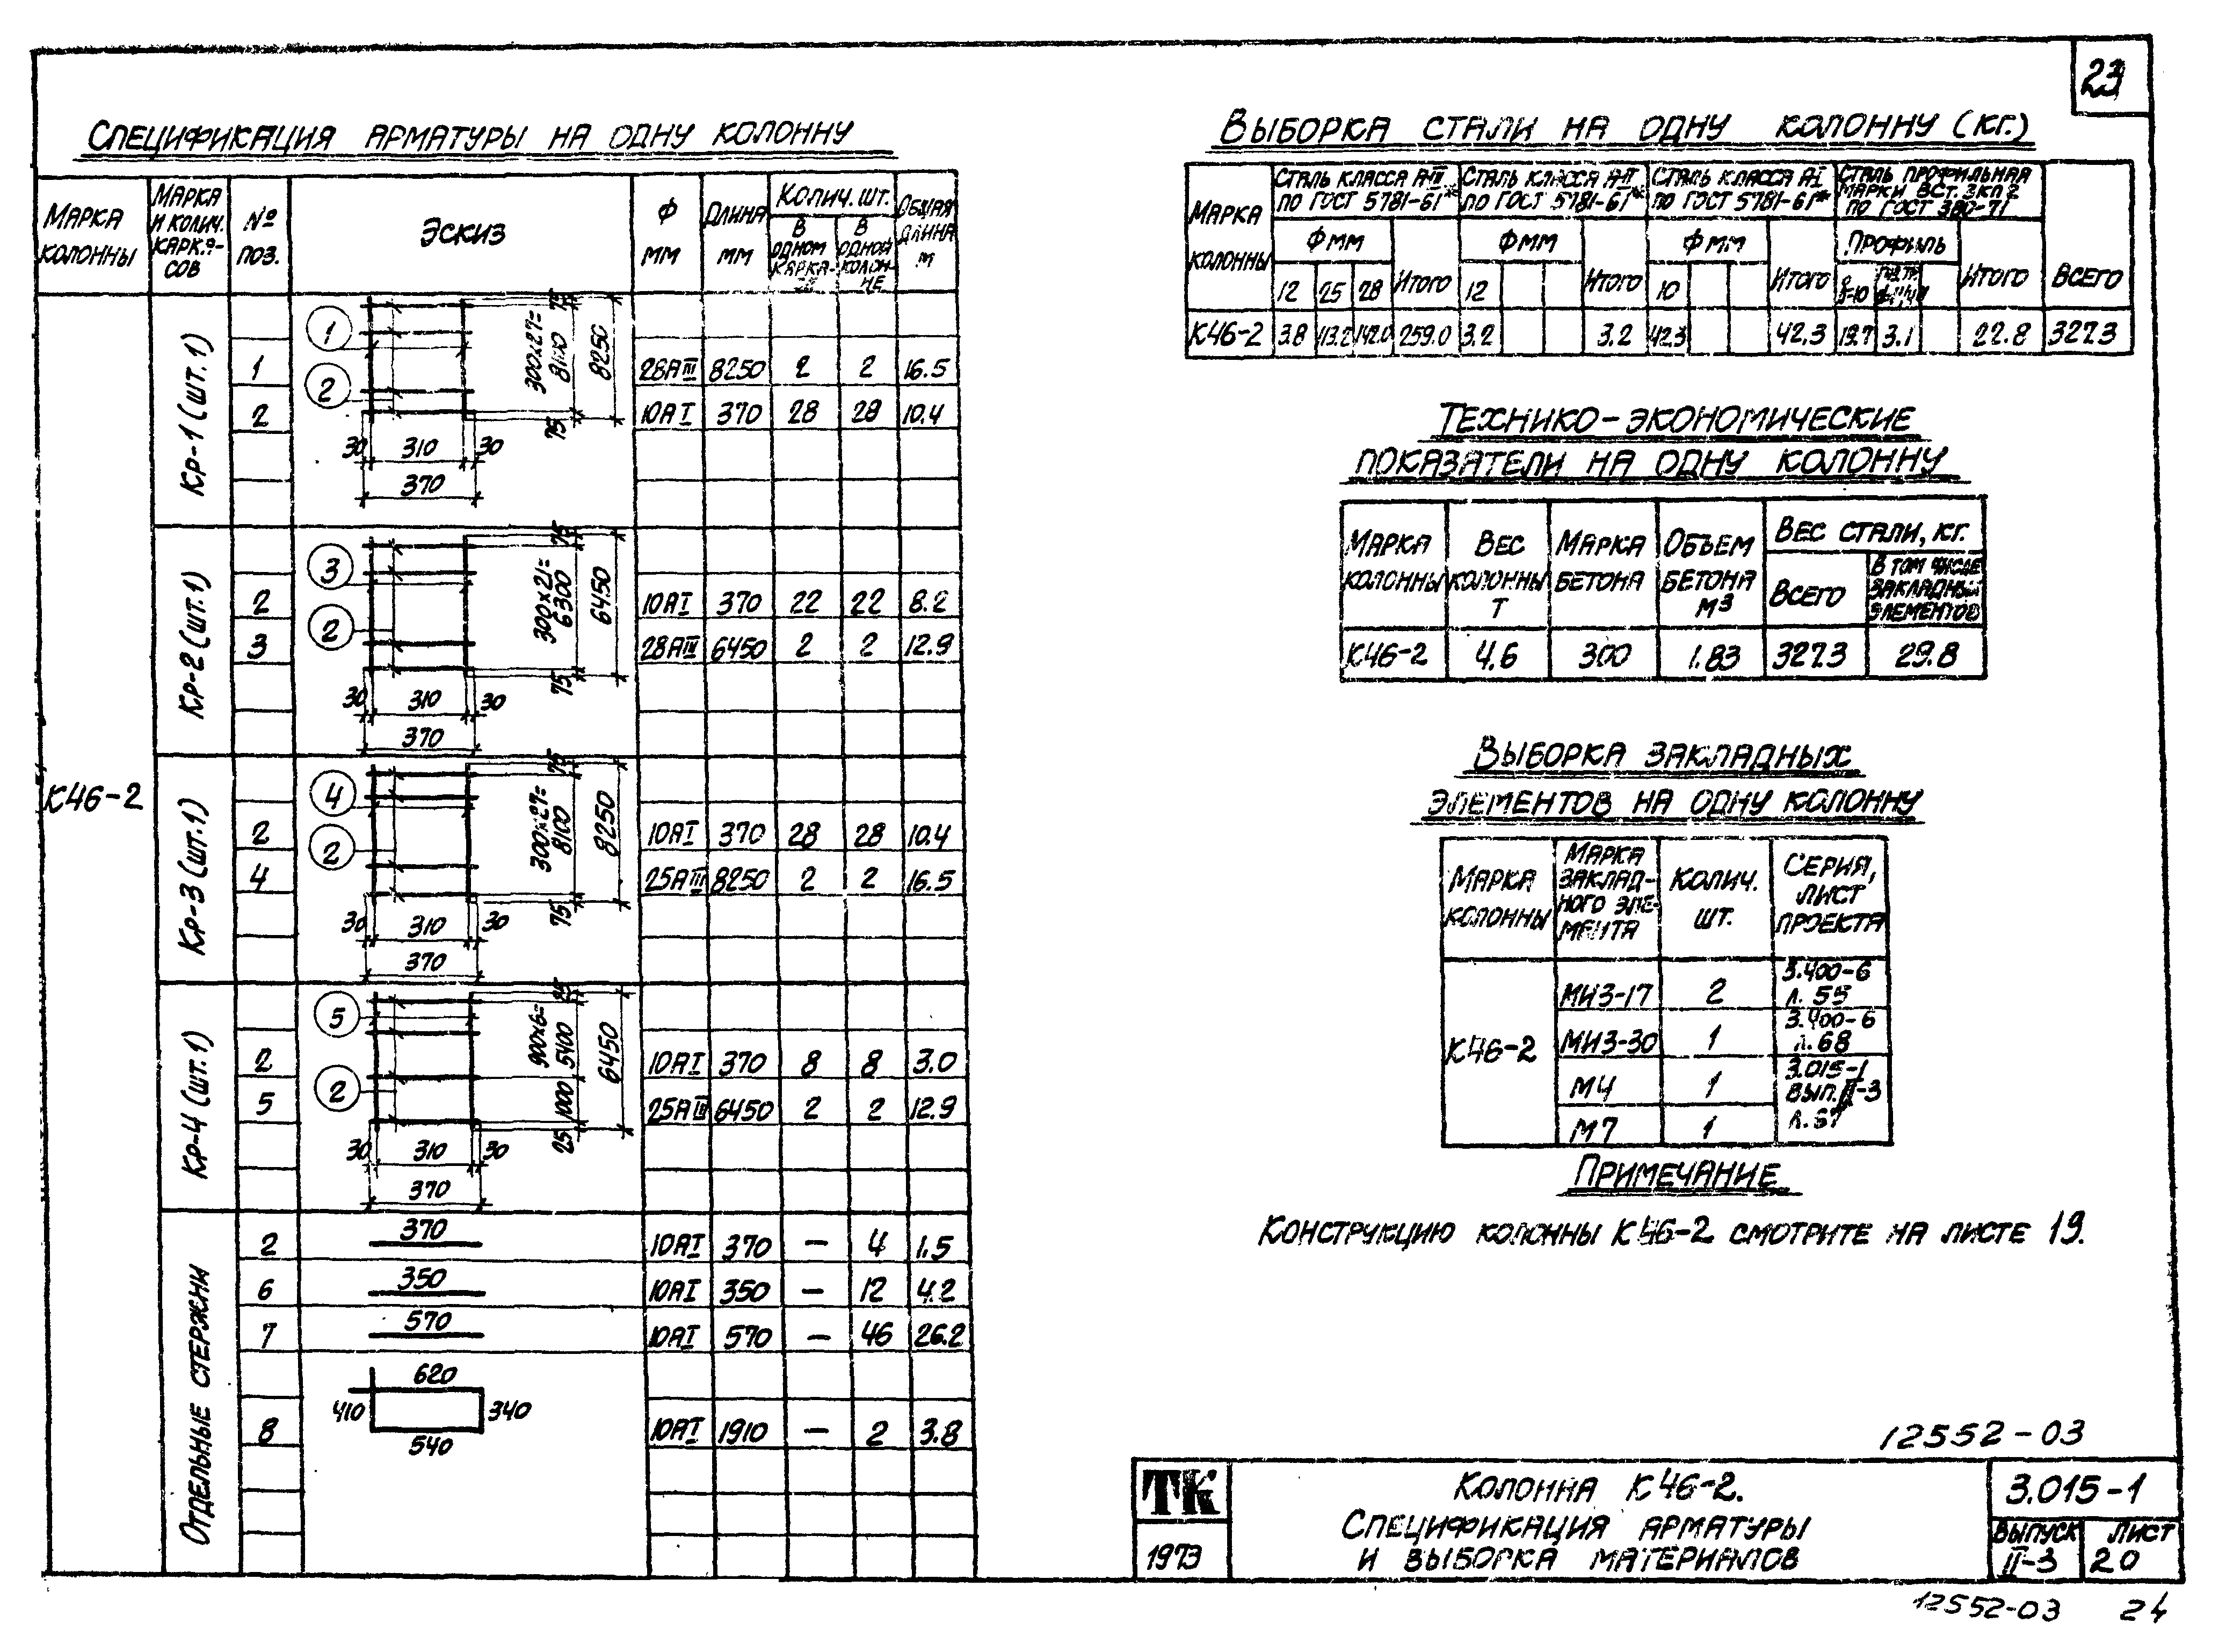 23
Спецификация арматуры на одну колонну
Марка колонны
Марка и колич. каркасов
№ поз.
Эскиз
Ф мм
Длина мм
Колич. шт.
В одном каркасе
В одной колонне
Общая длина м
К46-2
Кр-1 (шт. 1)
1 2
300х27= 8100 8250 75 75
30 310 30
370
1 28АIII 8250 2 2 16.5
2 10АI 370 28 28 10.4
Кр-2 (шт. 1)
3 2
300х21= 6300 6450 75 75
30 310 30
370
2 10АI 370 22 22 8.2
3 28АIII 6450 2 2 12.9
Кр-3 (шт. 1)
4 2
300х27= 8100 8250 75 75
30 310 30
370
2 10АI 370 28 28 10.4
4 25АIII 8250 2 2 16.5
Кр-4 (шт. 1)
5 2
900х6= 5400 6450 1000 25 25
30 310 30
370
2 10АI 370 8 8 3.0
5 25АIII 6450 2 2 12.9
Отдельные стержни
2 370 10АI 370 – 4 1.5
6 350 10АI 350 – 12 4.2
7 570 10АI 570 – 46 26.2
620
410 340
540
8 10АI 1910 – 2 3.8
Выборка стали на одну колонну (кг.)
Марка колонны
Сталь класса А-III по ГОСТ 5781-61*
Сталь класса А-II по ГОСТ 5781-61*
Сталь класса АI по ГОСТ 5781-61*
Сталь профильная марки ВСт. 3кп2 по ГОСТ 380-71
Ф мм Ф мм Ф мм Профиль
12 25 28 Итого 12 Итого 10 Итого δ=10 Итого Всего
К46-2 3.8 113.2 142.0 259.0 3.2 3.2 42.3 42.3 19.7 3.1 22.8 327.3
Технико-экономические
показатели на одну колонну
Марка колонны
Вес колонны т
Марка бетона
Объем бетона м3
Вес стали, кг.
Всего
В том числе закладных элементов
К46-2 4.6 300 1.83 327.3 29.8
Выборка закладных
элементов на одну колонну
Марка колонны
Марка закладного элемента
Колич. шт.
Серия, лист проекта
К46-2
МИЗ-17 2 3.400-6 л. 55
МИЗ-30 1 3.400-6 л. 68
М4 1 3.015-1 вып. II-3
М7 1 л. 67
Примечание
Конструкцию колонны К46-2 смотрите на листе 19.
12552-03
ТК
1973
Колонна К46-2.
Спецификация арматуры
и выборка материалов
3.015-1
Выпуск II-3
Лист 20
12552-03 24